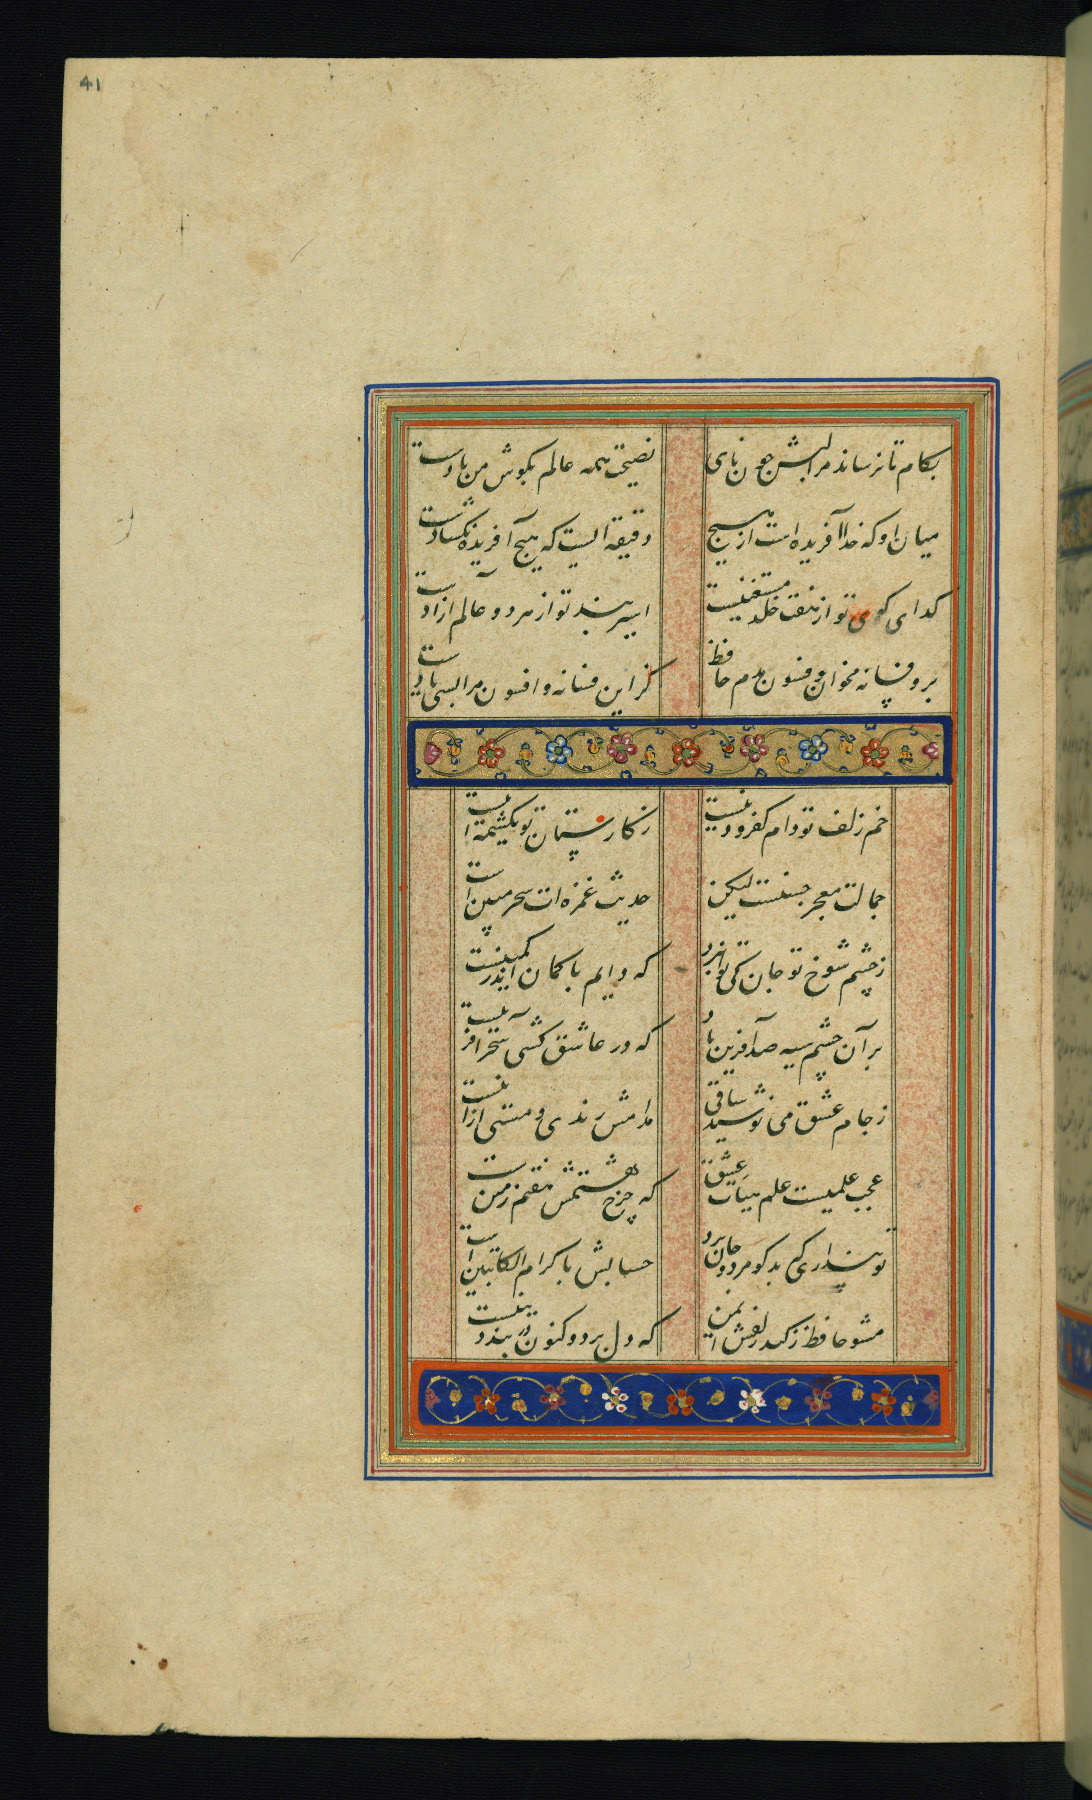 41
بکام تا نرساند مرا لبش چون نای
نصیحت همه عالم بکوش من بادست
میان او که خدا آفریده است از هیچ
دقیقه ایست که هیچ آفریده نکشادست
کدای کوی تو از هشت خلد مستغنیست
اسیر بند تو از هر دو عالم آزادست
برو فسانه مخوان و فسون مدم حافظ
کزاین فسانه و افسون مرا بسی یادست
خم زلف تو دام کفر و دینست
ز کارستان تو یک شمه اینست
جمالت معجز حسنست لیکن
حدیث غمزه ات سحر مبین است
ز چشم شوخ تو جان کی توان برد
که دایم با کمان اندر کمینست
بر آن چشم سیه صد آفرین باد
که در عاشق کشی سحر آفرینست
ز جام عشق می نوشید ساقی
مدامش رندی و مستی ازینست
عجب علمیست علم هیات عشق
که چرخ هشتمش هفتم زمین است
تو پنداری که بدکو مرد و جان برد
حسابش با کرام الکاتبین است
مشو حافظ ز کید زلفش ایمن
که دل برد و کنون در بند دینست